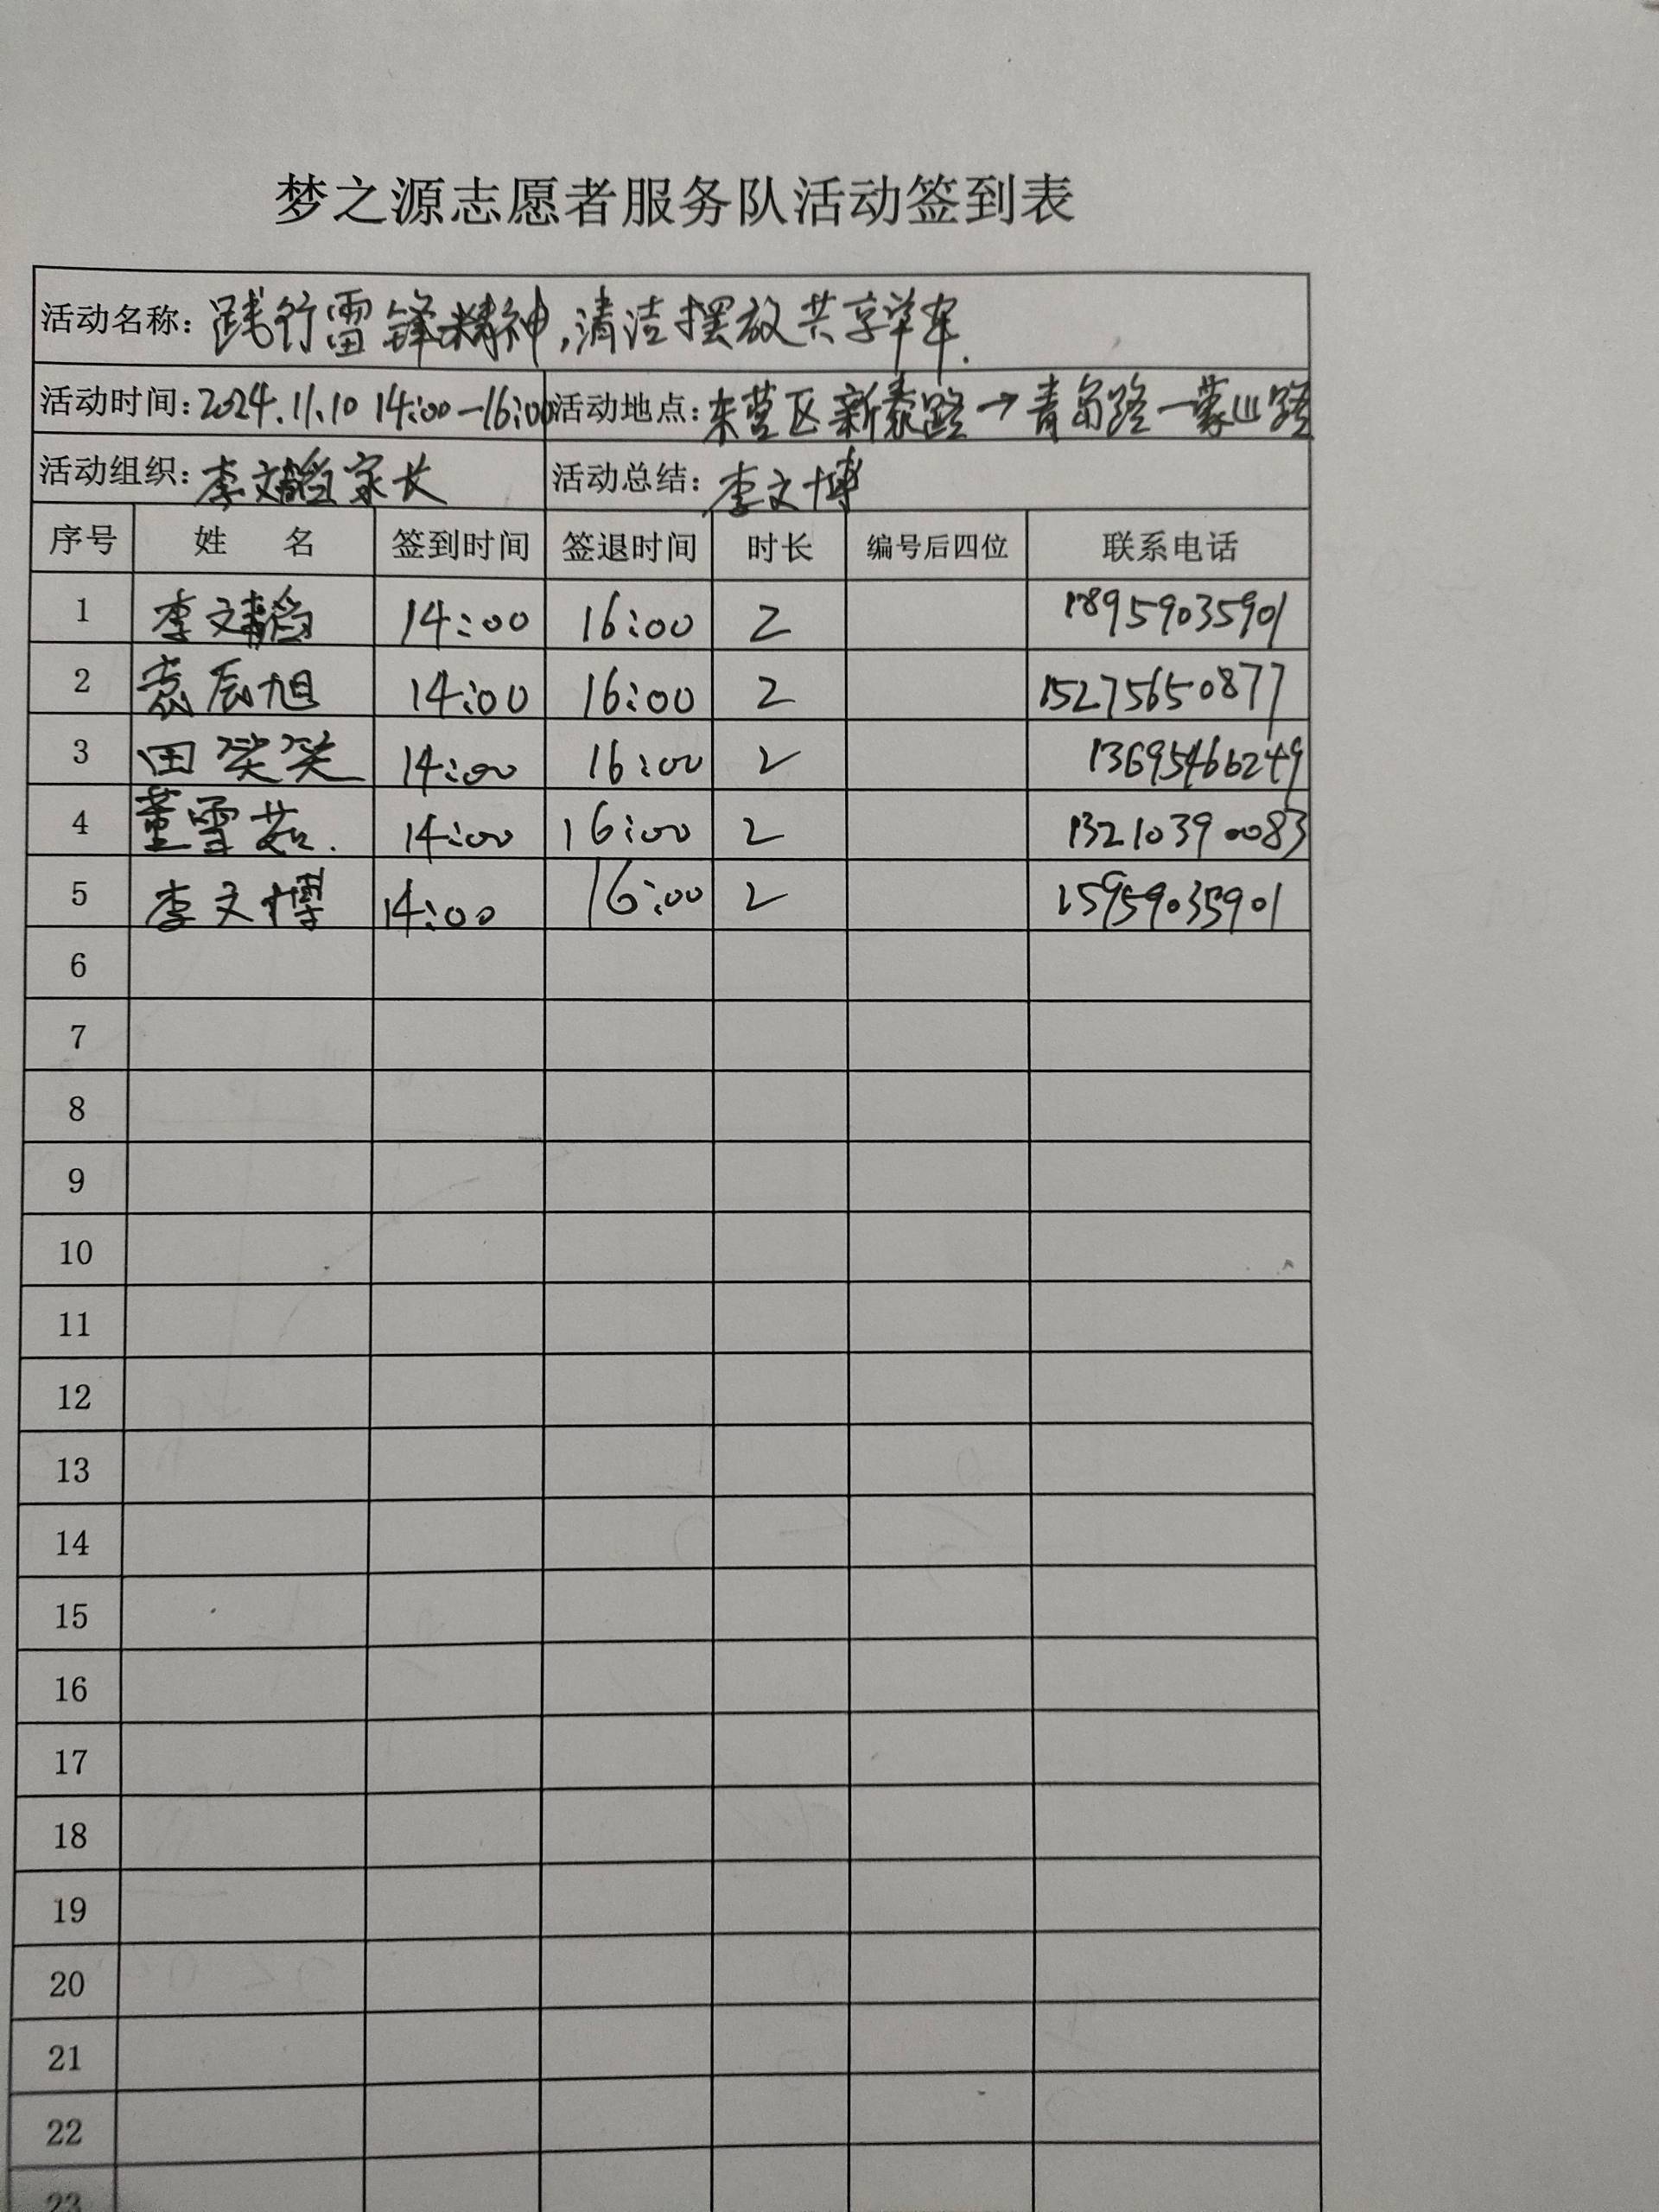 梦之源志愿者服务队活动签到表
活动名称：践行雷锋精神，清洁摆放共享单车.
活动时间：2024.11.10 14:00—16:00 活动地点：东营区新泰路→青岛路—蒙山路
活动组织：李文韬家长 活动总结：李文博
序号 姓 名 签到时间 签退时间 时长 编号后四位 联系电话
1 李文韬 14:00 16:00 2 18959035901
2 袁辰旭 14:00 16:00 2 15275650877
3 田笑笑 14:00 16:00 2 13695466249
4 董雪茹. 14:00 16:00 2 13210390083
5 李文博 14:00 16:00 2 15959035901
6
7
8
9
10
11
12
13
14
15
16
17
18
19
20
21
22
23